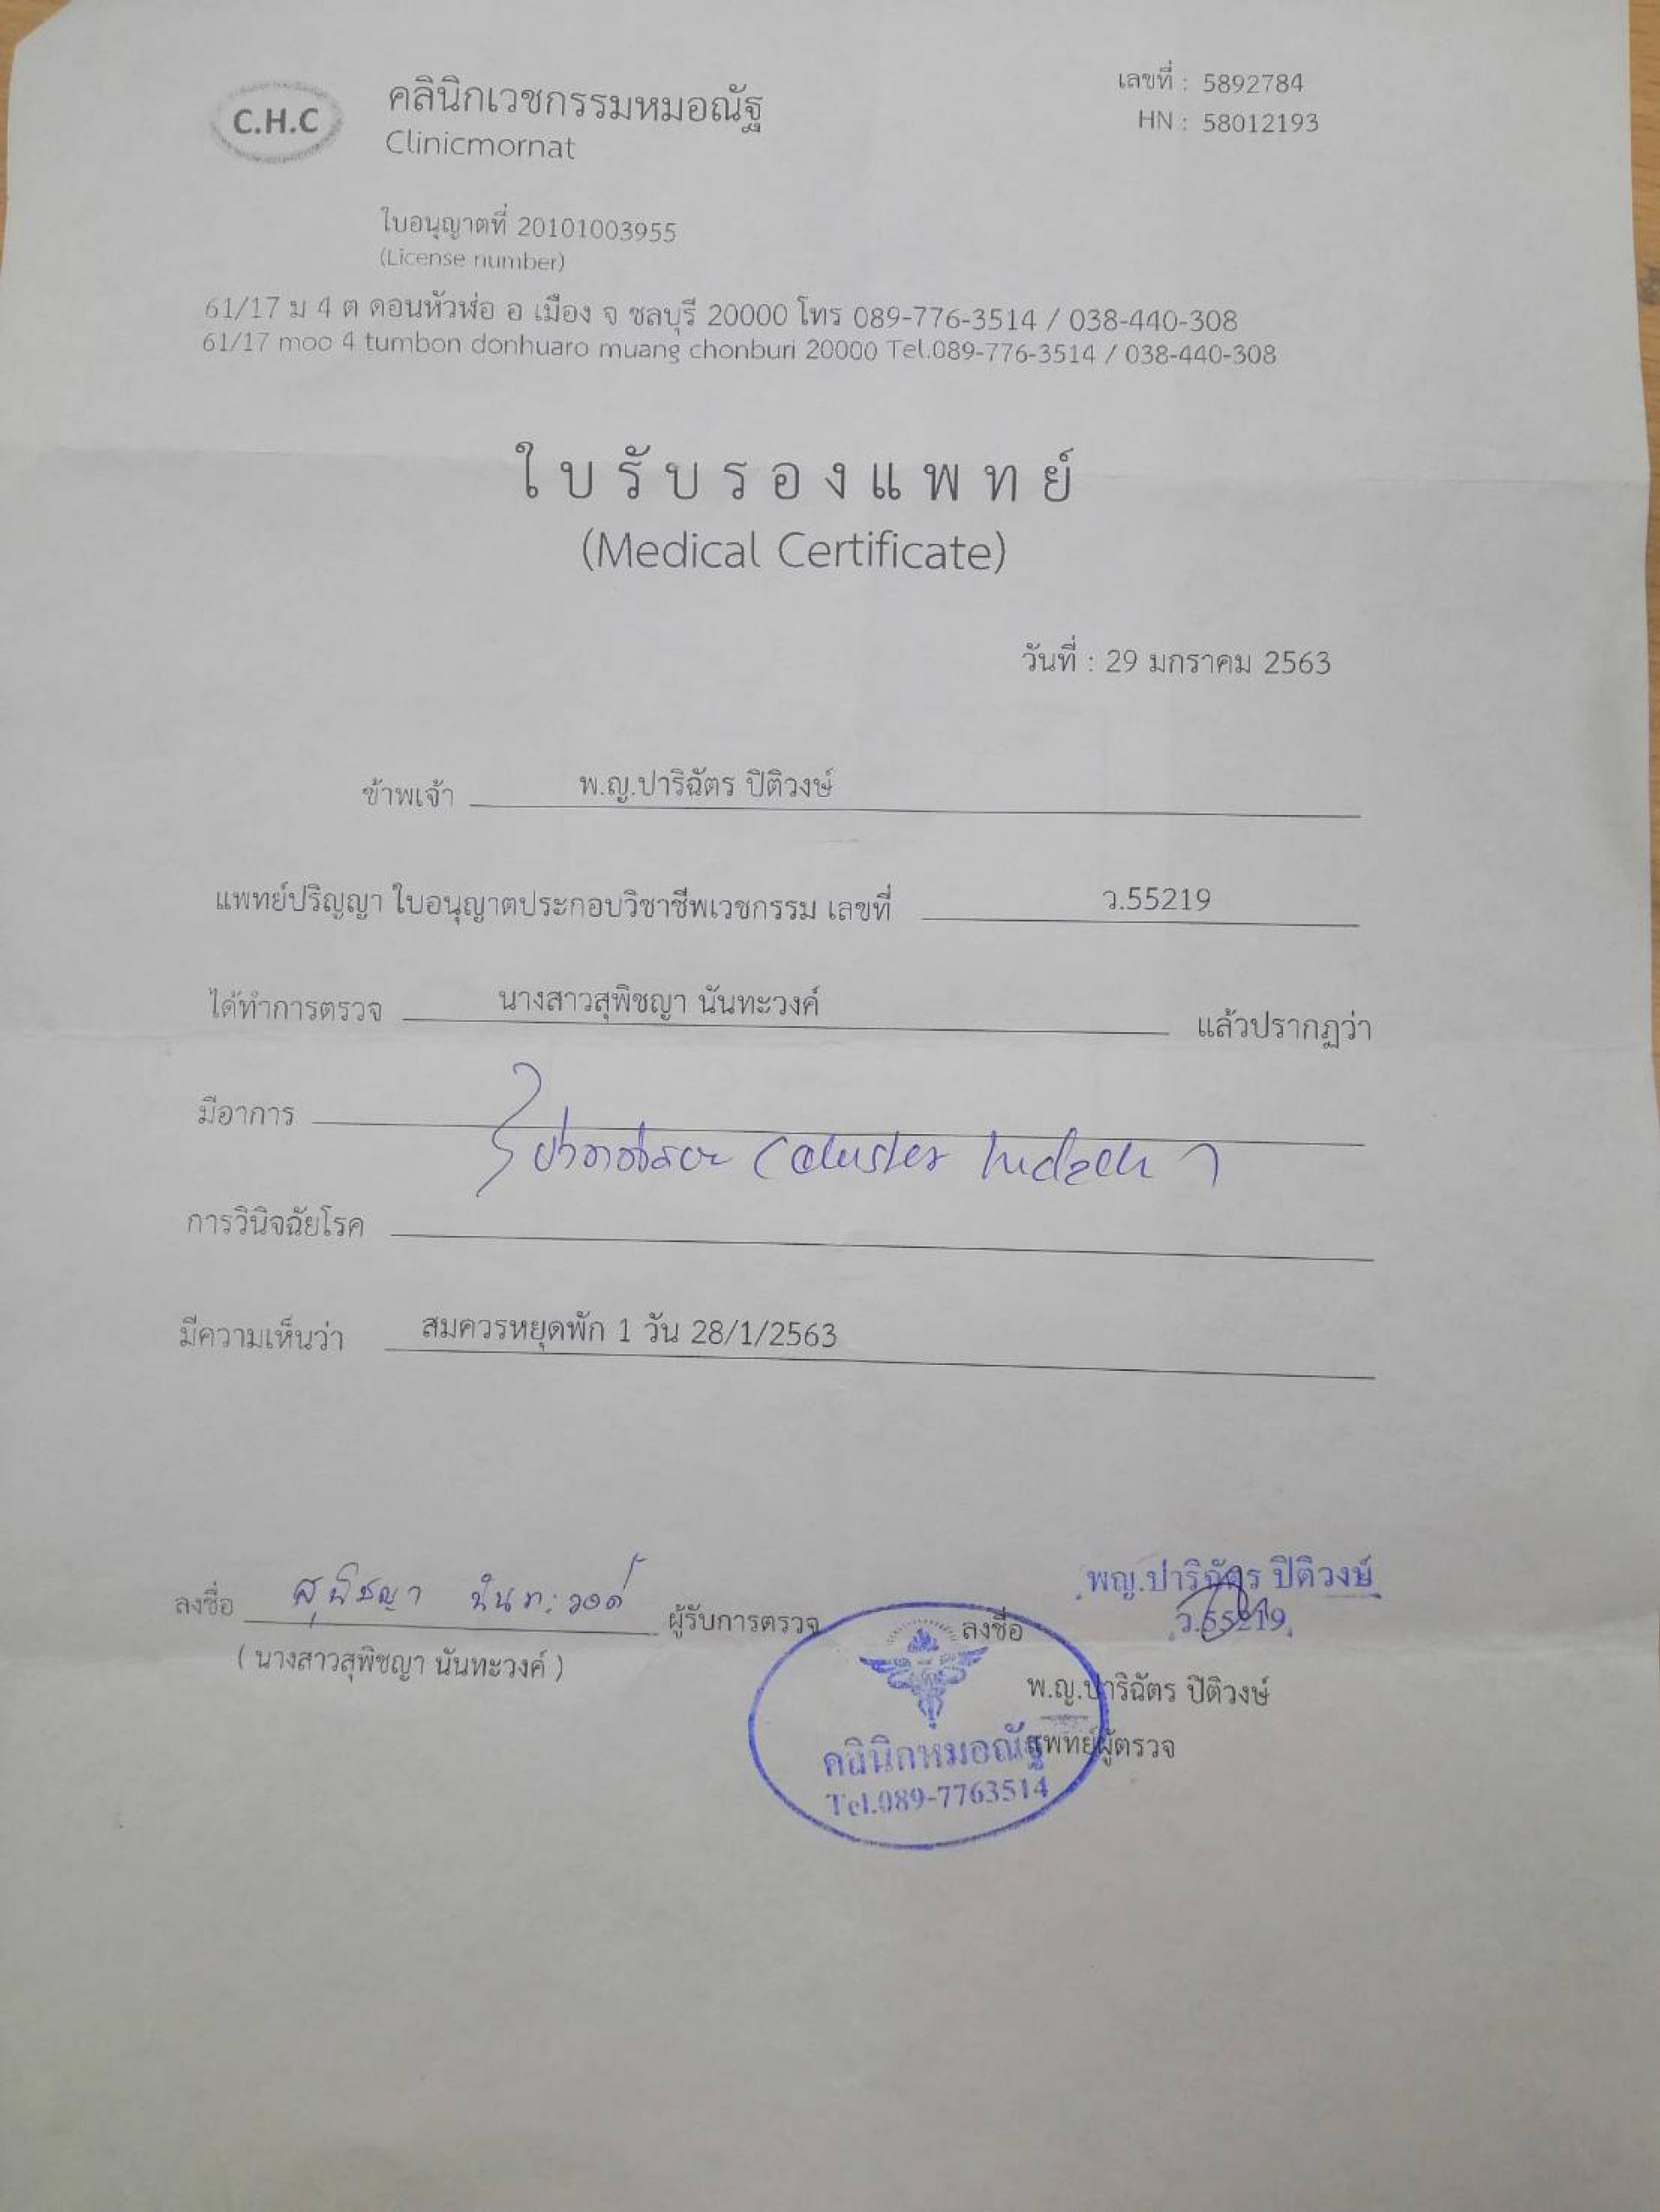 C.H.C
คลินิกเวชกรรมหมอณัฐ
Clinicmornat
เลขที่ : 5892784
HN : 58012193
ใบอนุญาตที่ 20101003955
(License number)
61/17 ม 4 ต ดอนหัวฬ่อ อ เมือง จ ชลบุรี 20000 โทร 089-776-3514 / 038-440-308
61/17 moo 4 tumbon donhuaro muang chonburi 20000 Tel.089-776-3514 / 038-440-308
ใบรับรองแพทย์
(Medical Certificate)
วันที่ : 29 มกราคม 2563
ข้าพเจ้า พ.ญ.ปาริฉัตร ปิติวงษ์
แพทย์ปริญญา ใบอนุญาตประกอบวิชาชีพเวชกรรม เลขที่ ว.55219
ได้ทำการตรวจ นางสาวสุพิชญา นันทะวงค์ แล้วปรากฏว่า
มีอาการ
(cluster
การวินิจฉัยโรค
มีความเห็นว่า สมควรหยุดพัก 1 วัน 28/1/2563
พญ.ปาริฉัตร ปิติวงษ์
ว.55219
ลงชื่อ สุพิชญา นันทะวงค์ ผู้รับการตรวจ ลงชื่อ
( นางสาวสุพิชญา นันทะวงค์ )
พ.ญ.ปาริฉัตร ปิติวงษ์
แพทย์ผู้ตรวจ
คลินิกหมอณัฐ
Tel.089-7763514